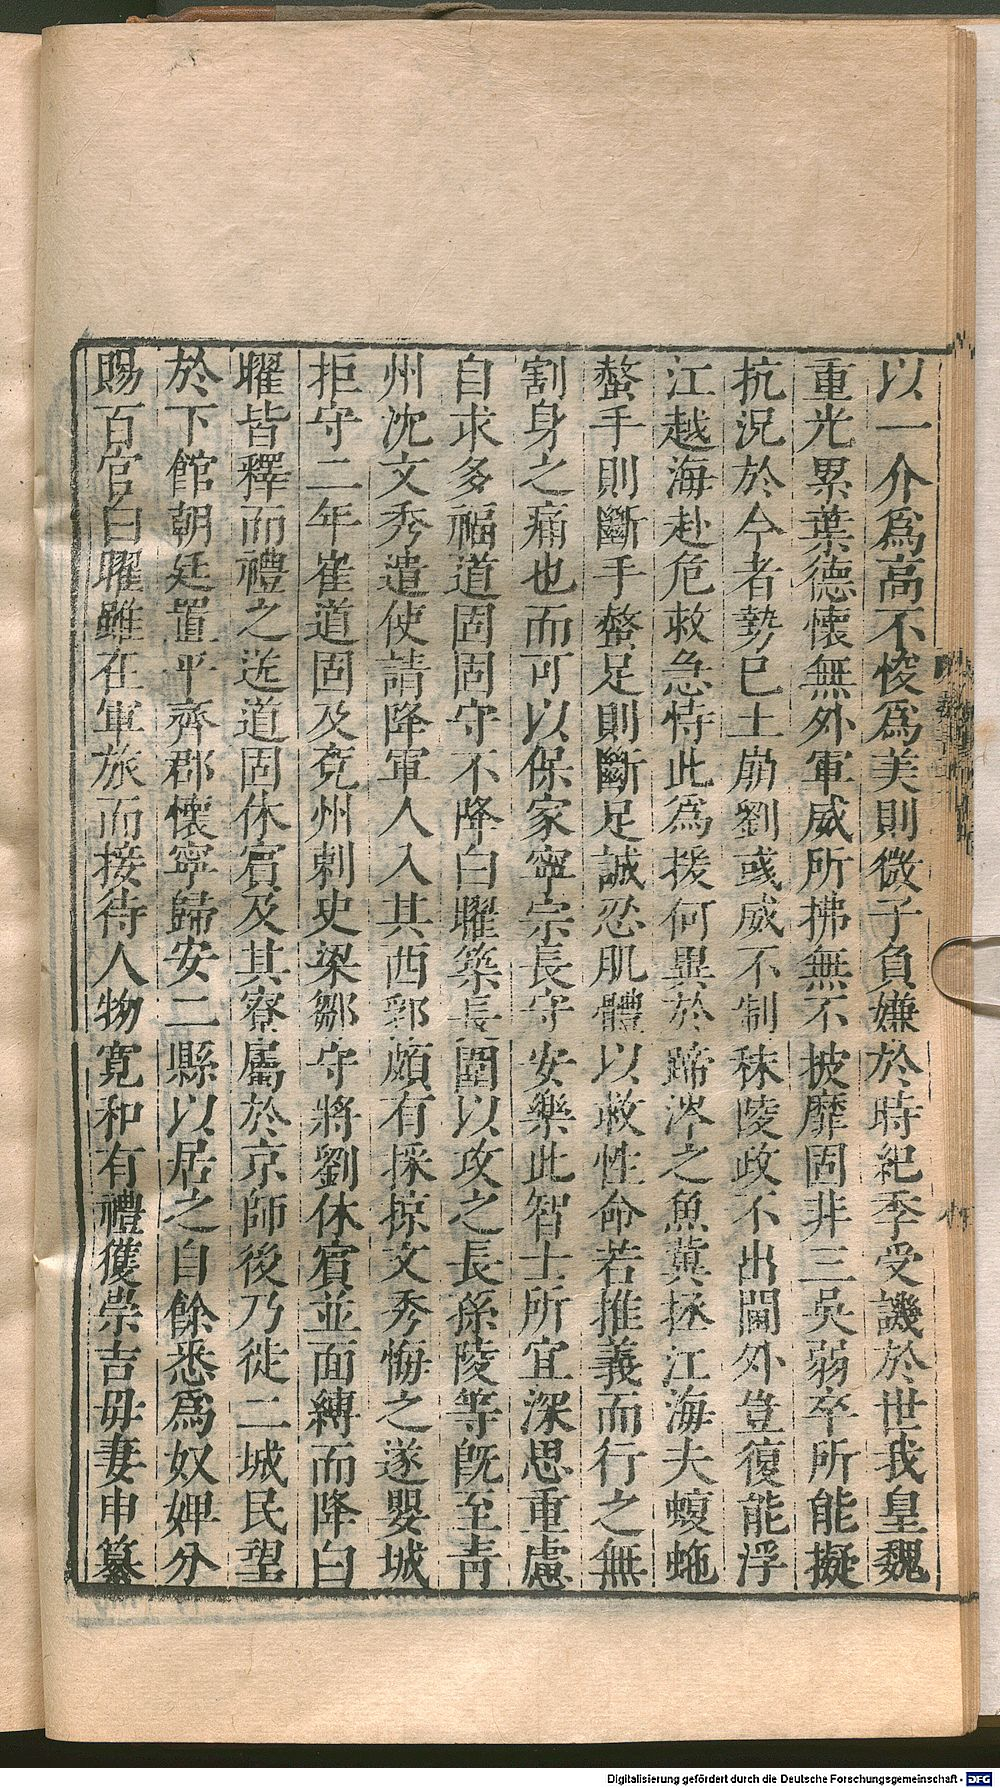 以一介爲高不悛爲美則微子負嫌於時紀季受譏於世我皇魏
重光累葉德懷無外軍威所拂無不披靡固非三吳弱卒所能擬
抗況於今者勢巳土崩劉彧威不制秣陵政不出閫外豈復能浮
江越海赴危救急恃此爲援何異於蹄涔之魚冀拯江海夫蝮虵
螫手則斷手螫足則斷足誠忍肌體以救性命若推義而行之無
割身之痛也而可以保家寧宗長守安樂此智士所宜深思重慮
自求多福道固固守不降白曜築長圍以攻之長孫陵等旣至靑
州沈文秀遣使請降軍人入其西郛頗有採掠文秀悔之遂嬰城
拒守二年崔道固及兗州刺史梁鄒守將劉休賓並面縛而降白
曜皆釋而禮之送道固休賓及其寮屬於京師後乃徙二城民望
於下館朝廷置平齊郡懷寧歸安二縣以居之自餘悉爲奴婢分
賜百官白曜雖在軍旅而接待人物寬和有禮獲崇吉毋妻申纂
Digitalisierung gefördert durch die Deutsche Forschungsgemeinschaft - DFG